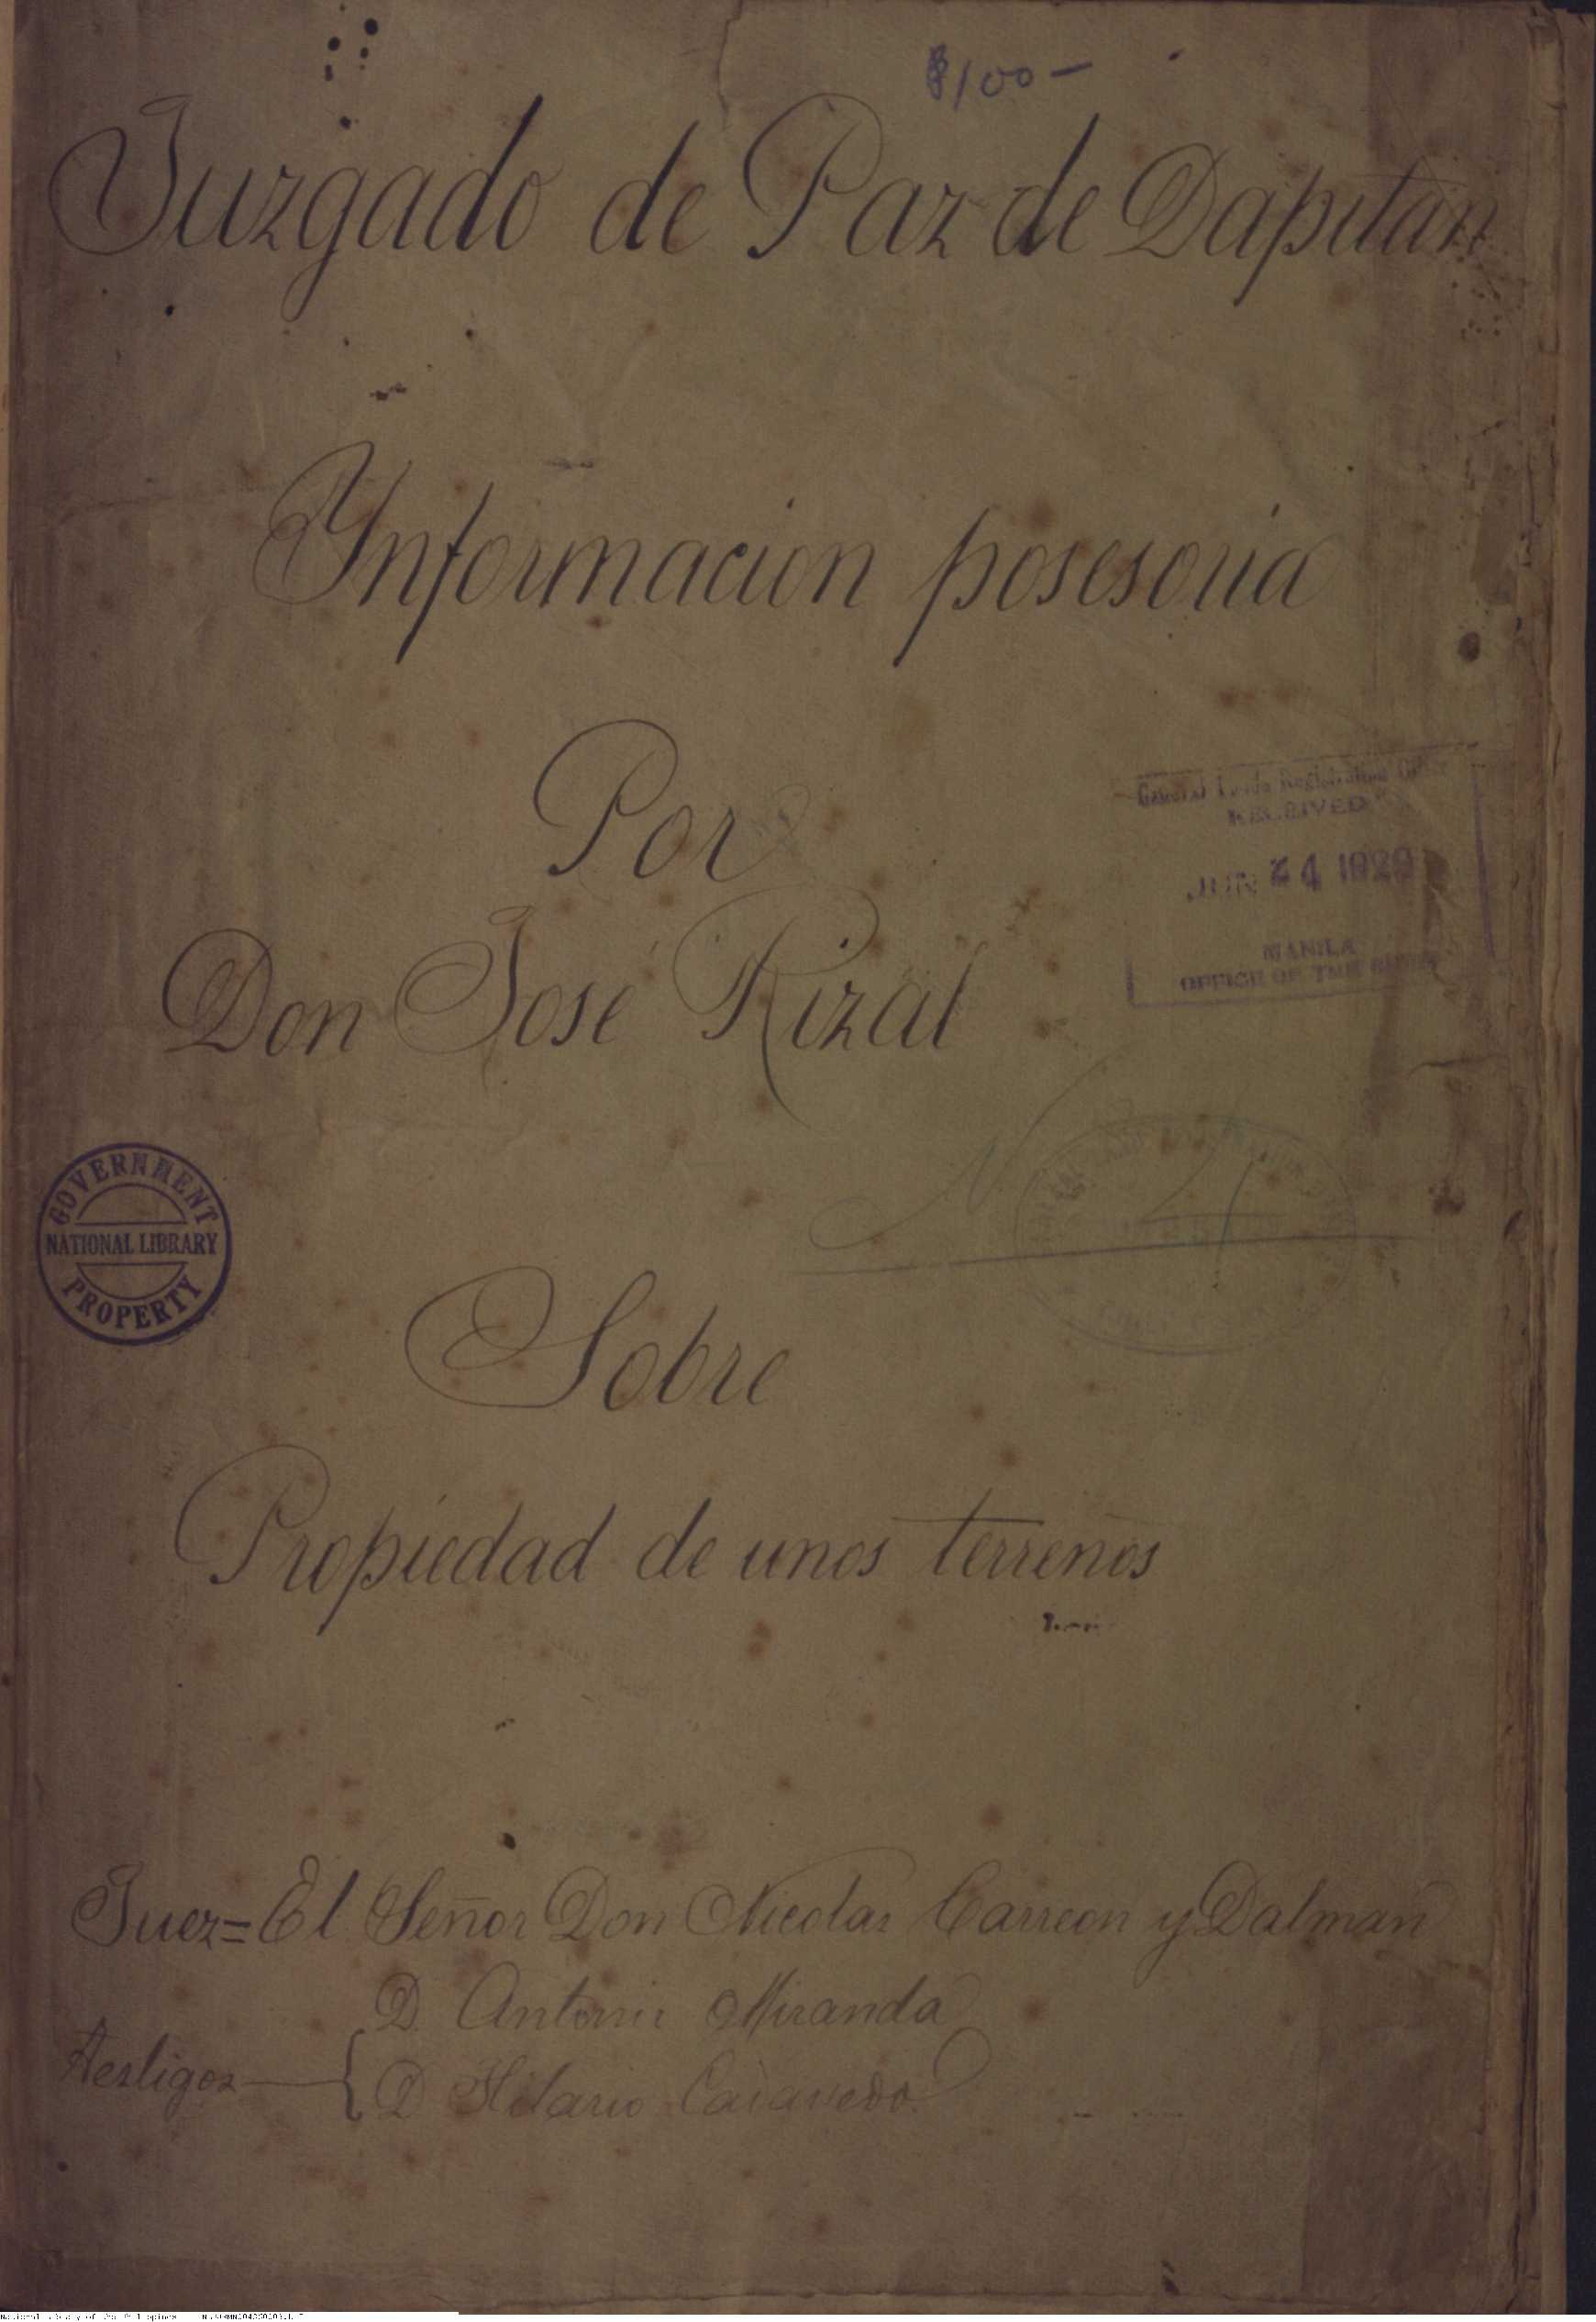 $100-
Juzgado de Paz de Dapitan
Ynformacion posesoria
Por
Don José Rizal
RECEIVED
JUN 24 1929
MANILA
OFFICE OF THE
GOVERNMENT
NATIONAL LIBRARY
PROPERTY
Sobre
Propiedad de unos terrenos
Juez= El Señor Don Nicolas Carreon y Dalman
D. Antonio Miranda
Testigos
D Hilario